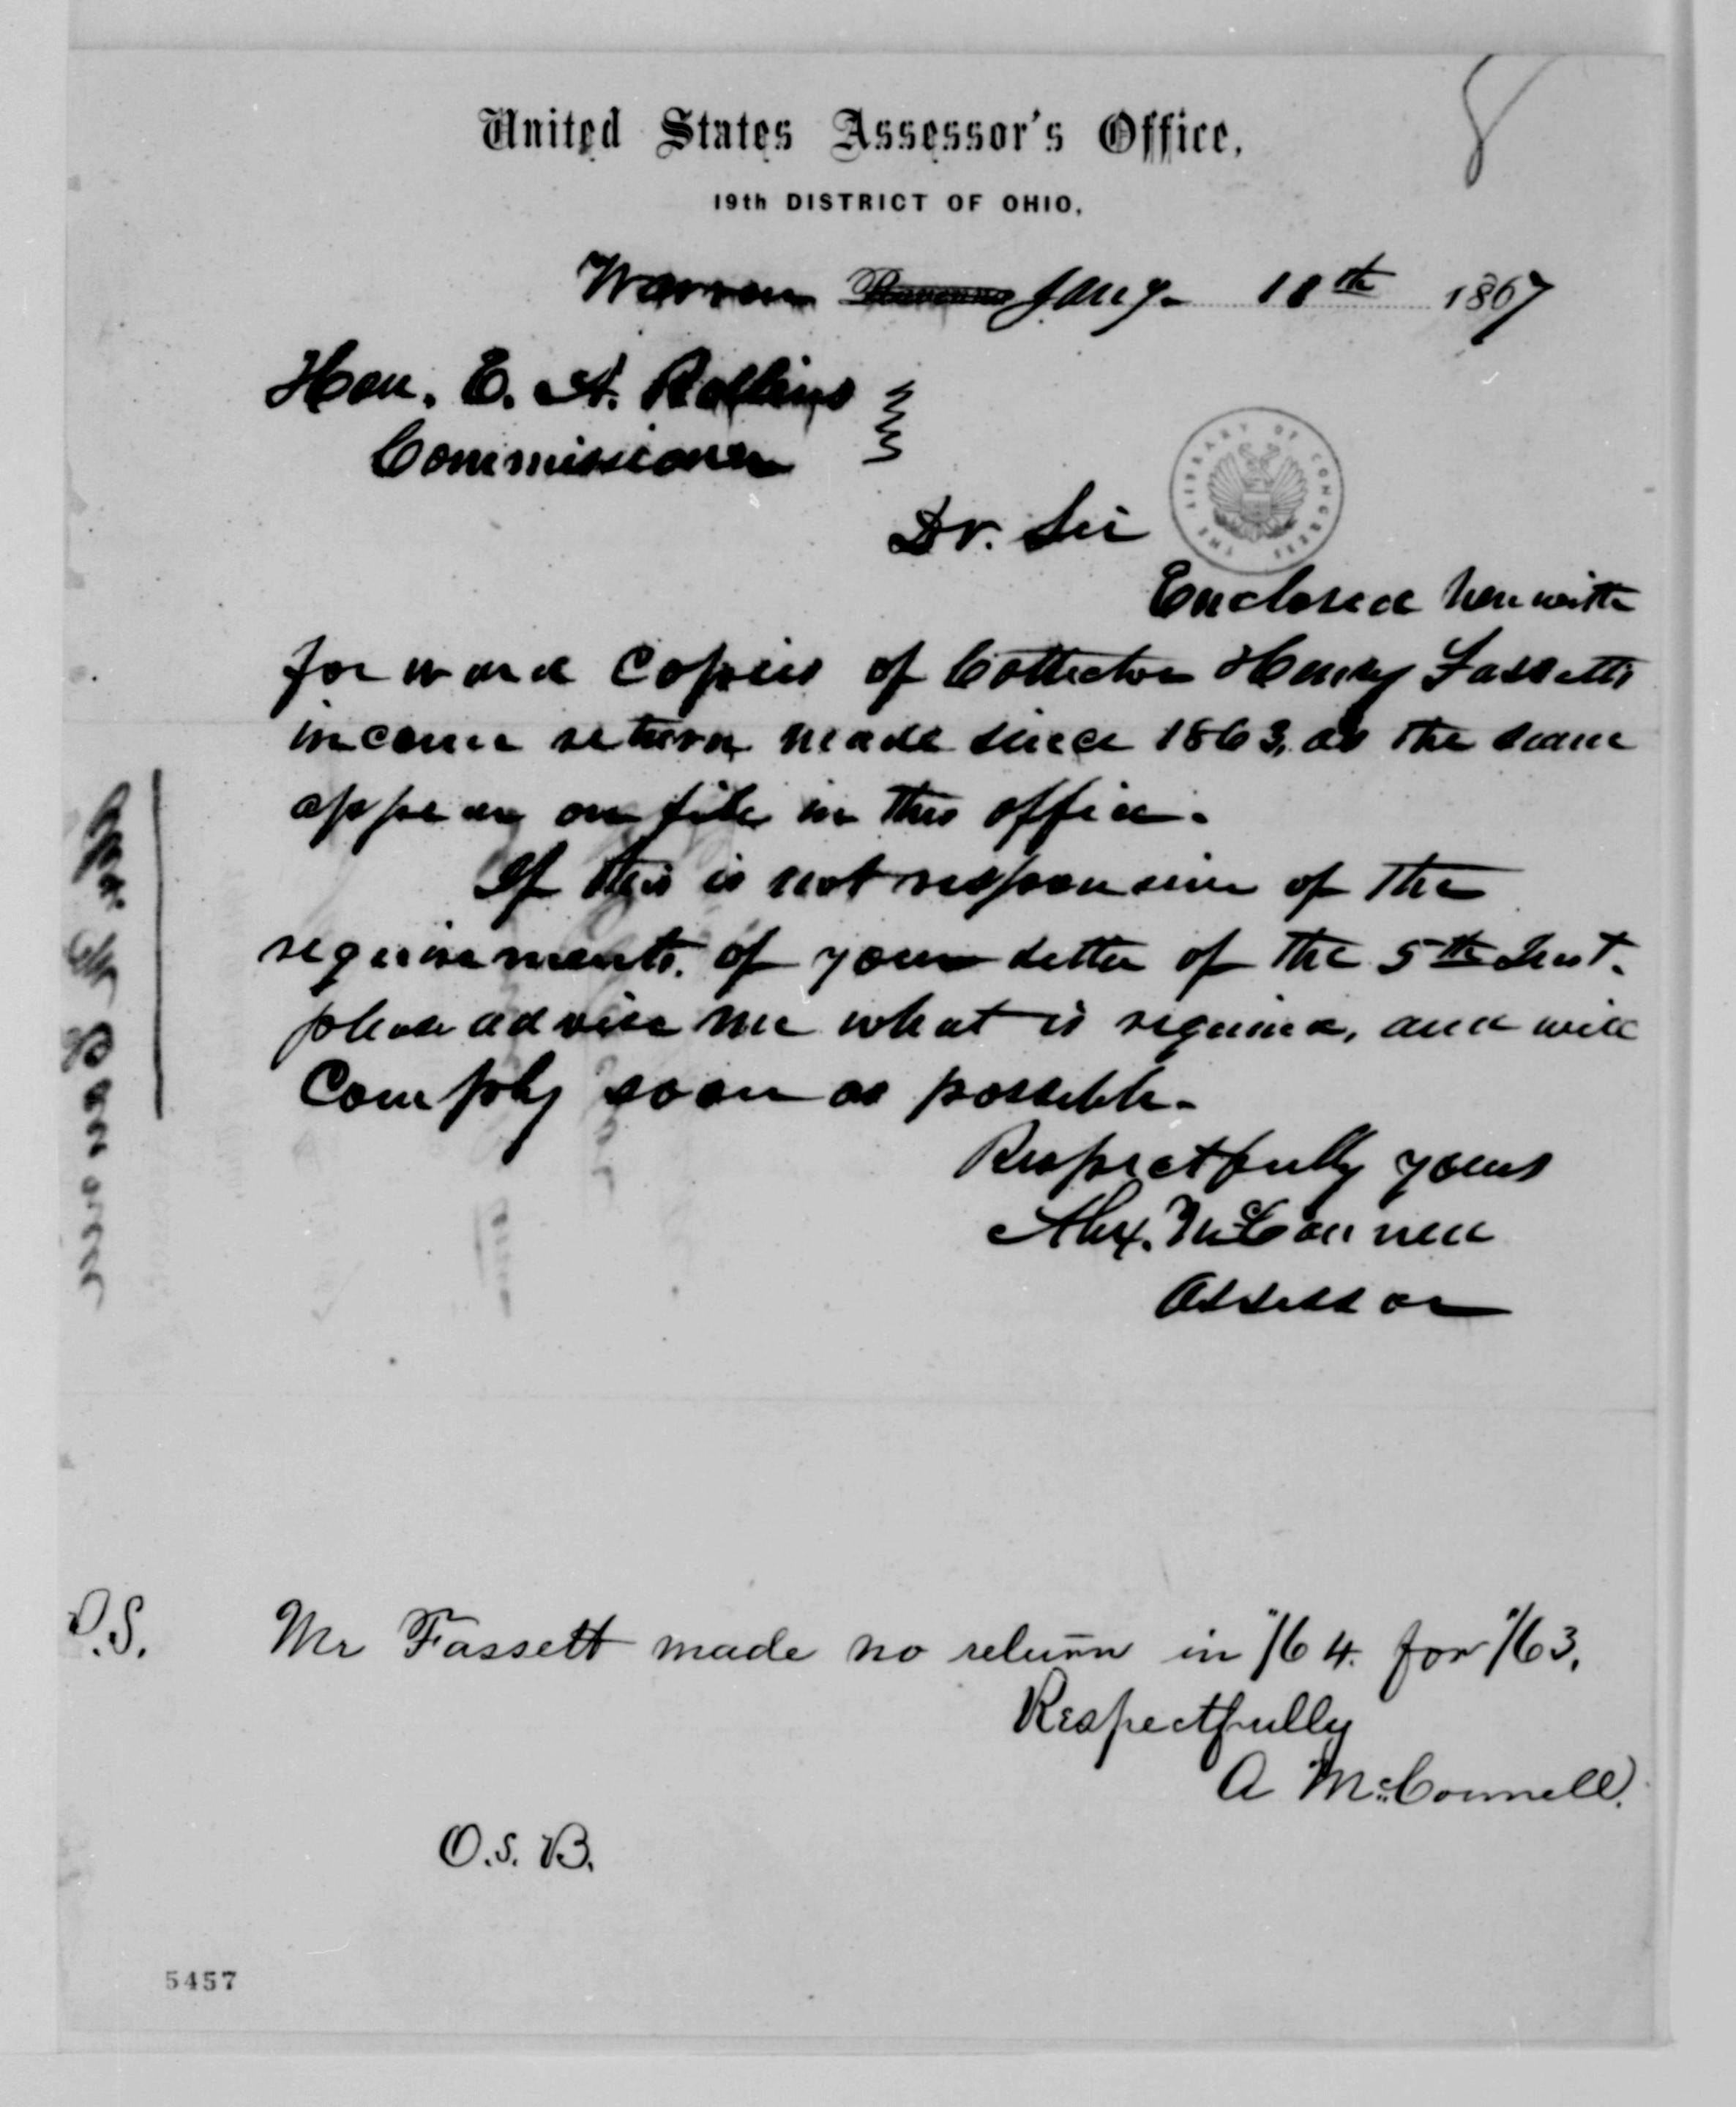 8
United States Assessor's Office,
19th DISTRICT OF OHIO,
Warren Ravenna Jany. 18th 1867
Hon. E. A. Rollins
Commissioner
Dr. Sir
THE LIBRARY OF CONGRESS
Enclosed herewith
forward copies of Collector Henry Fassetts
income return made since 1863, as the same
appear on file in this office.
If this is not responsive of the
requirements of your letter of the 5th Inst.
please advise me what is required, and will
Comply soon as possible.
Respectfully yours
Alex. McConnell
Assessor
P.S. Mr Fassett made no return in /64. for /63.
Respectfully
A McConnell.
O.S.B.
5457